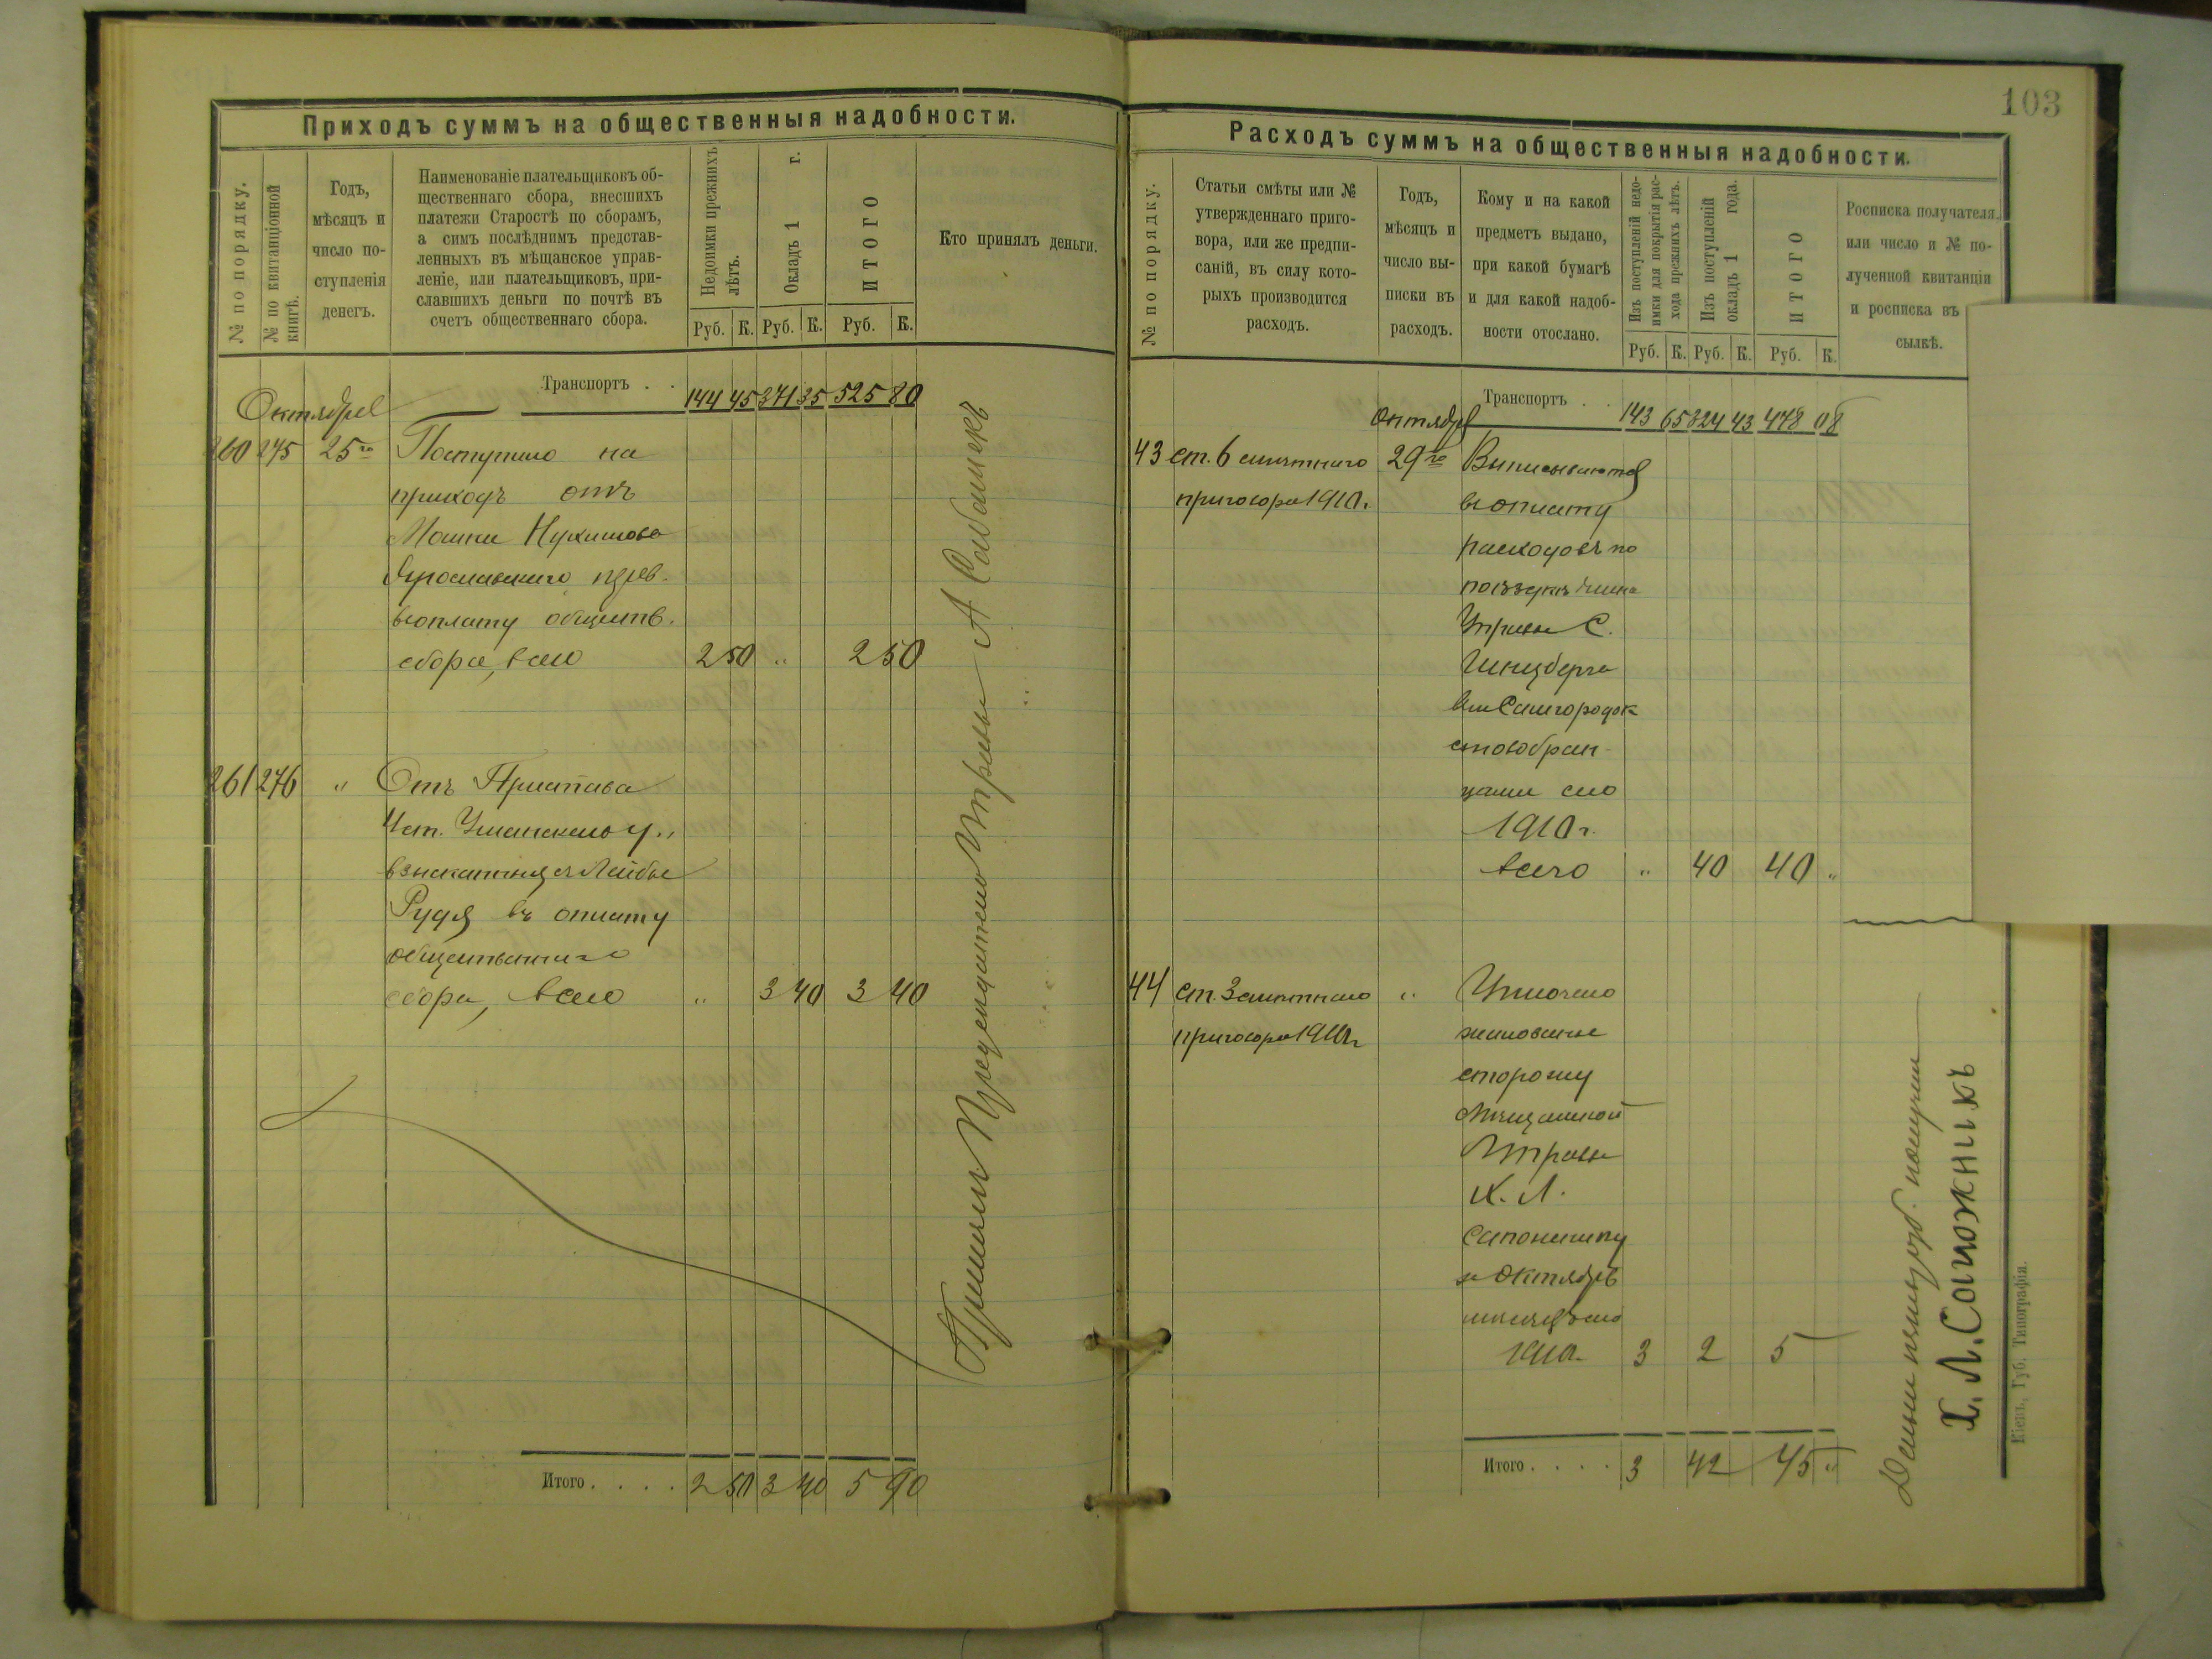 103
Приходъ суммъ на общественныя надобности.
№ по порядку.
№ по квитанціонной
книгѣ.
Годъ,
мѣсяцъ и
число по-
ступленія
денегъ.
Наименованіе плательщиковъ об-
щественнаго сбора, внесшихъ
платежи Старостѣ по сборамъ,
а симъ послѣднимъ представ-
ленныхъ въ мѣщанское управ-
леніе, или плательщиковъ, при-
славшихъ деньги по почтѣ въ
счетъ общественнаго сбора.
Недоимки прежнихъ
лѣтъ.
Окладъ 1 г.
ИТОГО
Кто принялъ деньги.
Руб. К. Руб. К. Руб. К.
Транспортъ . . 144 45 371 35 525 80
Октября
260 275 25го Поступило на
приходъ отъ
Мошки Нухимова
въ оплату обществ.
сбора, всего 2 50 " 2 50
261 276 " Отъ Пристава
4 ст. Уманскаго у.,
Лейбы
Рудя въ оплату
общественнаго
сбора, всего " 3 40 3 40
Управы А
Итого . . . . 2 50 3 40 5 90
Расходъ суммъ на общественныя надобности.
№ по порядку.
Статьи смѣты или №
утвержденнаго приго-
вора, или же предпи-
саній, въ силу кото-
рыхъ производится
расходъ.
Годъ,
мѣсяцъ и
число вы-
писки въ
расходъ.
Кому и на какой
предметъ выдано,
при какой бумагѣ
и для какой надоб-
ности отослано.
Изъ поступленій недо-
имки для покрытія рас-
хода прежнихъ лѣтъ.
Изъ поступленій
окладъ 1 года.
ИТОГО
Росписка получателя,
или число и № по-
лученной квитанціи
и росписка въ
сылкѣ.
Руб. К. Руб. К. Руб. К.
Транспортъ . . 143 65 324 43 478 08
Октября
43 ст. 6 смѣтнаго 29го Выписывается
приговора 1910 г. въ оплату
расходовъ по
поѣздкѣ члена
Управы С.
Гинцберга
въ м. Самгородок
1910 г.
всего " 40 40 "
44 ст. 3 смѣтнаго " Уплочено
приговора 1910 г жалованье
сторожу
Мѣщанской
Управы
Х. Л.
Сапожнику
за Октябрь
мѣсяцъ сего
1910 г. 3 2 5
Итого . . . . 3 42 45 "
получилъ
Х. Л. Сапожникъ
Кіевъ, Губ. Типографія.